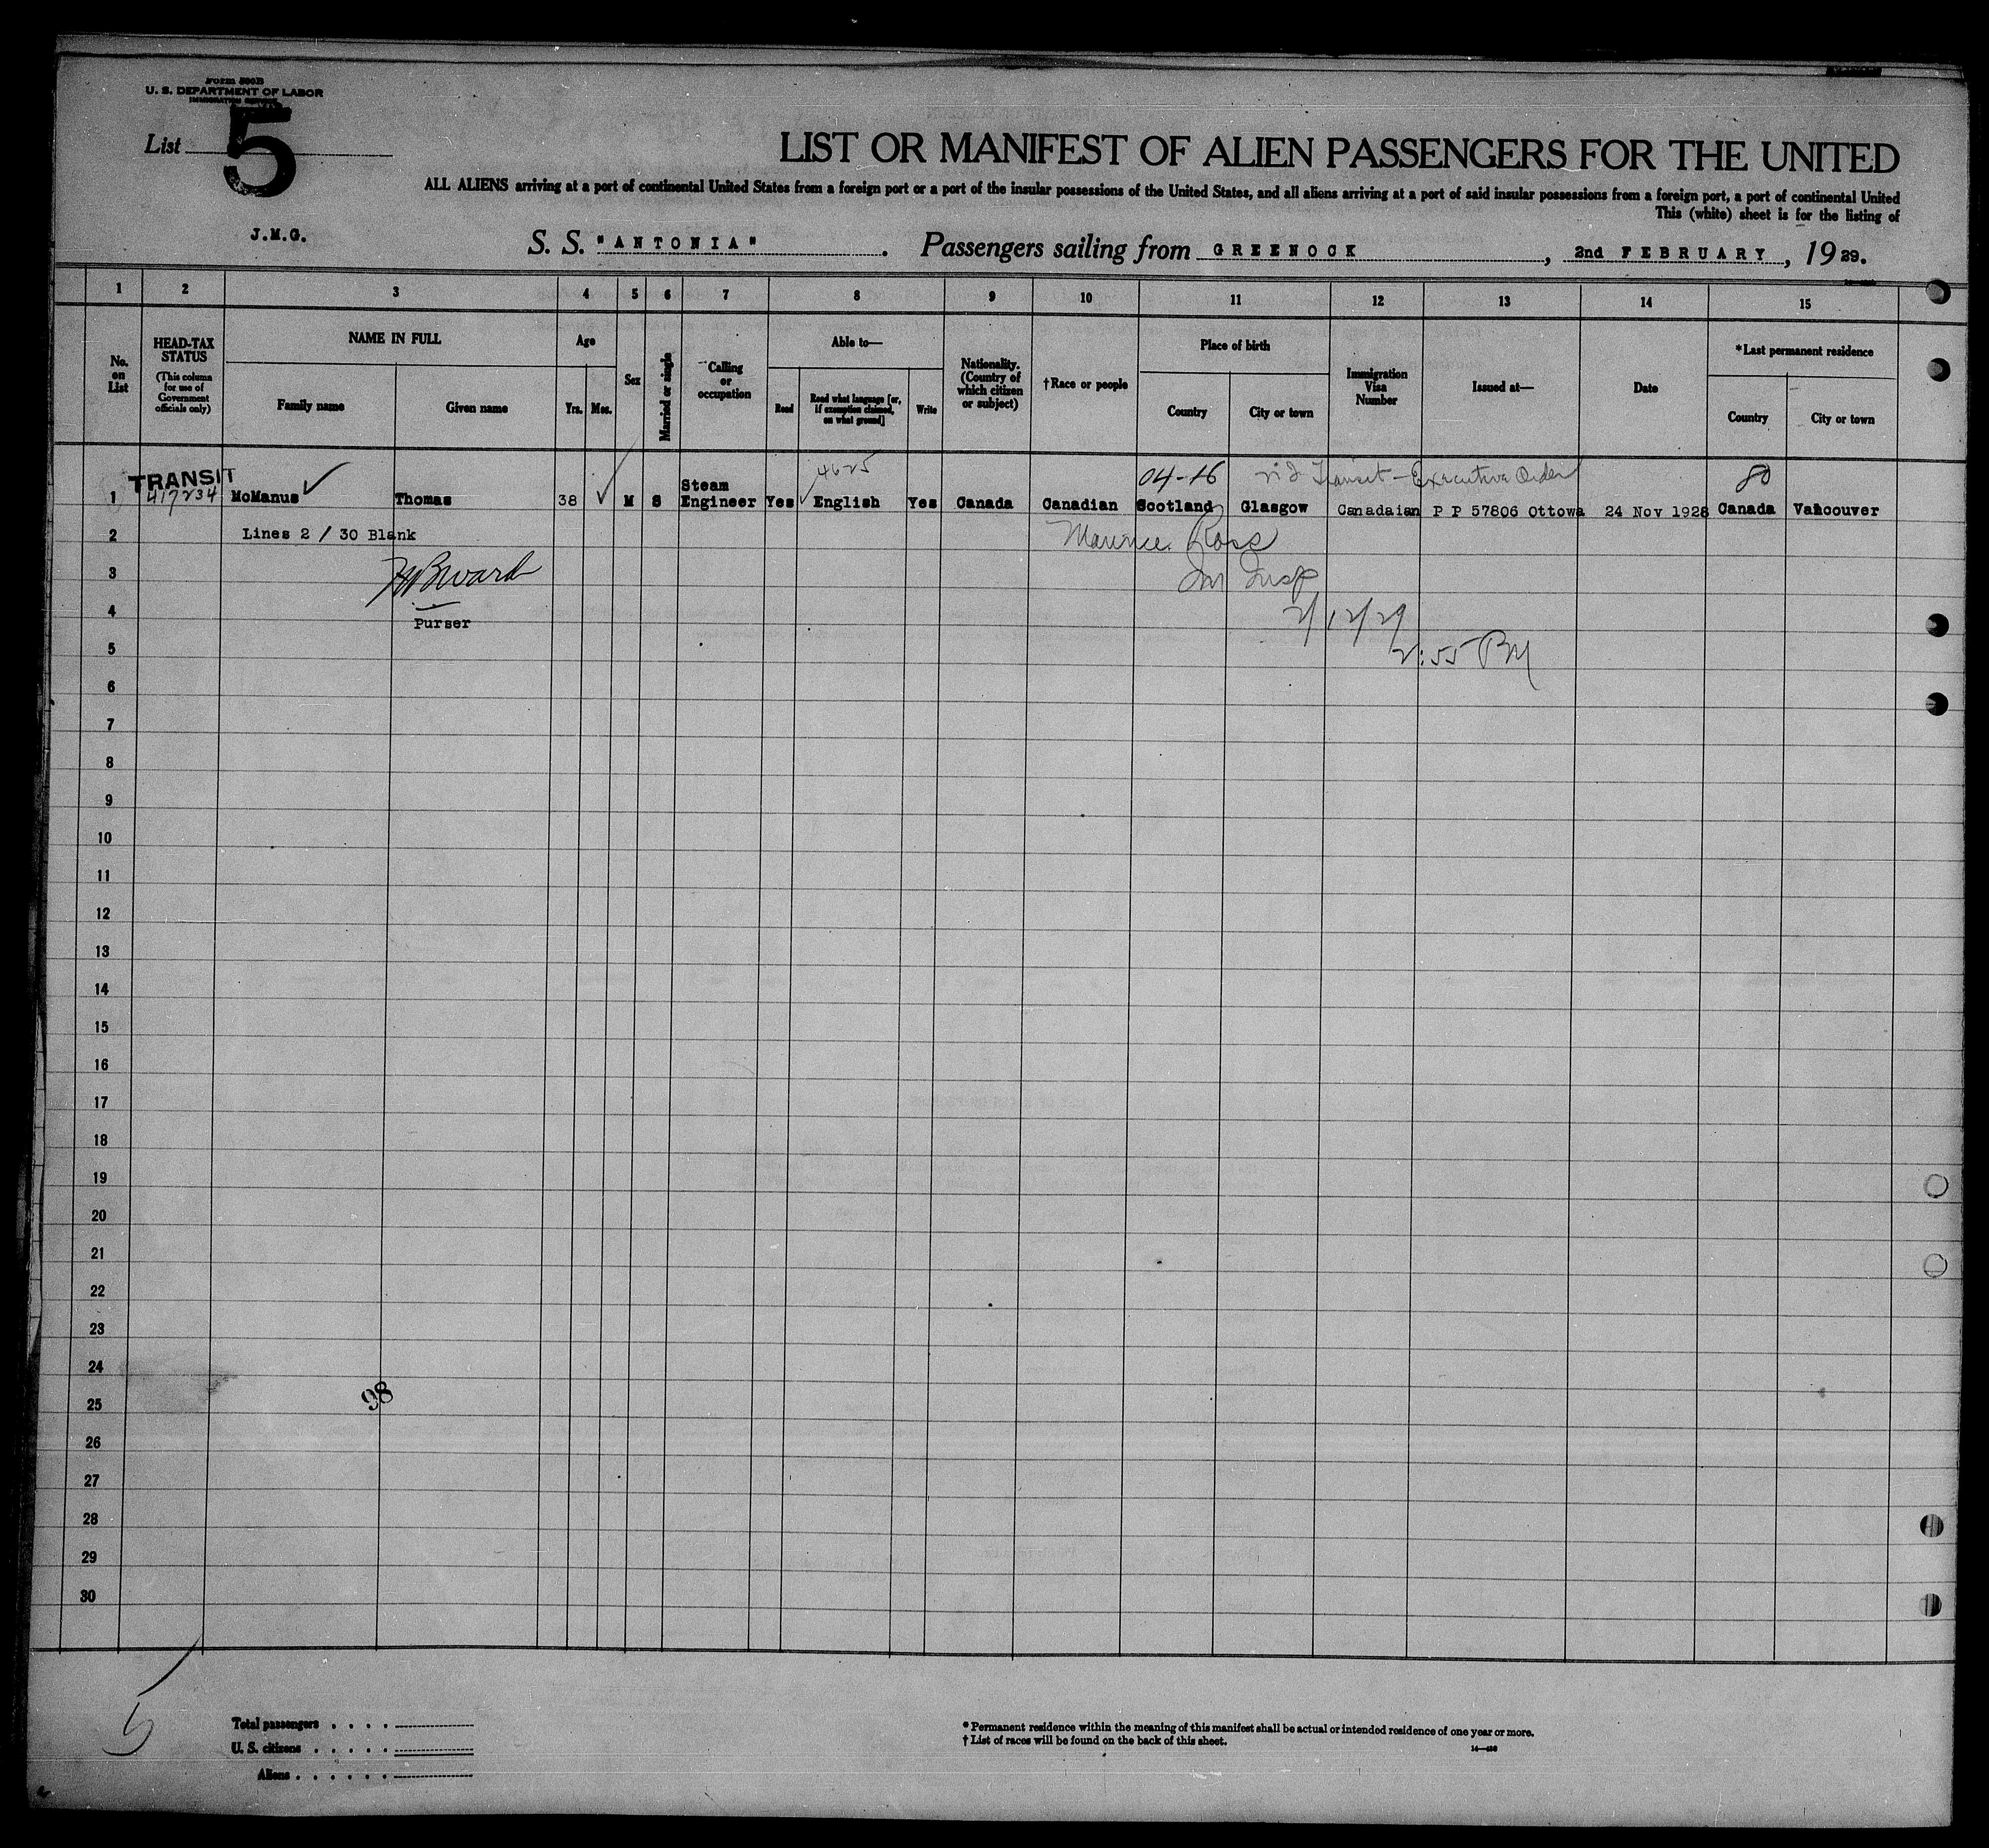 Form 500B
U. S. DEPARTMENT OF LABOR
IMMIGRATION SERVICE
List 5
LIST OR MANIFEST OF ALIEN PASSENGERS FOR THE UNITED
ALL ALIENS arriving at a port of continental United States from a foreign port or a port of the insular possessions of the United States, and all aliens arriving at a port of said insular possessions from a foreign port, a port of continental United
This (white) sheet is for the listing of
J.M.G.
S. S. "ANTONIA". Passengers sailing from GREENOCK, 2nd FEBRUARY, 1929.
1 2 3 4 5 6 7 8 9 10 11 12 13 14 15
No. on List
HEAD-TAX STATUS
(This column for use of Government officials only)
NAME IN FULL
Family name
Given name
Age
Yrs. Mos.
Sex
Married or single
Calling or occupation
Able to—
Read
Read what language [or, if exemption claimed, on what ground]
Write
Nationality. (Country of which citizen or subject)
†Race or people
Place of birth
Country
City or town
Immigration Visa Number
Issued at—
Date
*Last permanent residence
Country
City or town
TRANSIT 4625 04-16 Transit - Executive Order 80
1 417234 McManus Thomas 38 M S Steam Engineer Yes English Yes Canada Canadian Scotland Glasgow Canadaian P P 57806 Ottowa 24 Nov 1928 Canada Vancouver
2 Lines 2 / 30 Blank Maurice Ross
3 Im Insp
4 Purser 2/12/29
5 2:55 PM
6
7
8
9
10
11
12
13
14
15
16
17
18
19
20
21
22
23
24
25 98
26
27
28
29
30
5
Total passengers
U. S. citizens
Aliens
* Permanent residence within the meaning of this manifest shall be actual or intended residence of one year or more.
† List of races will be found on the back of this sheet.